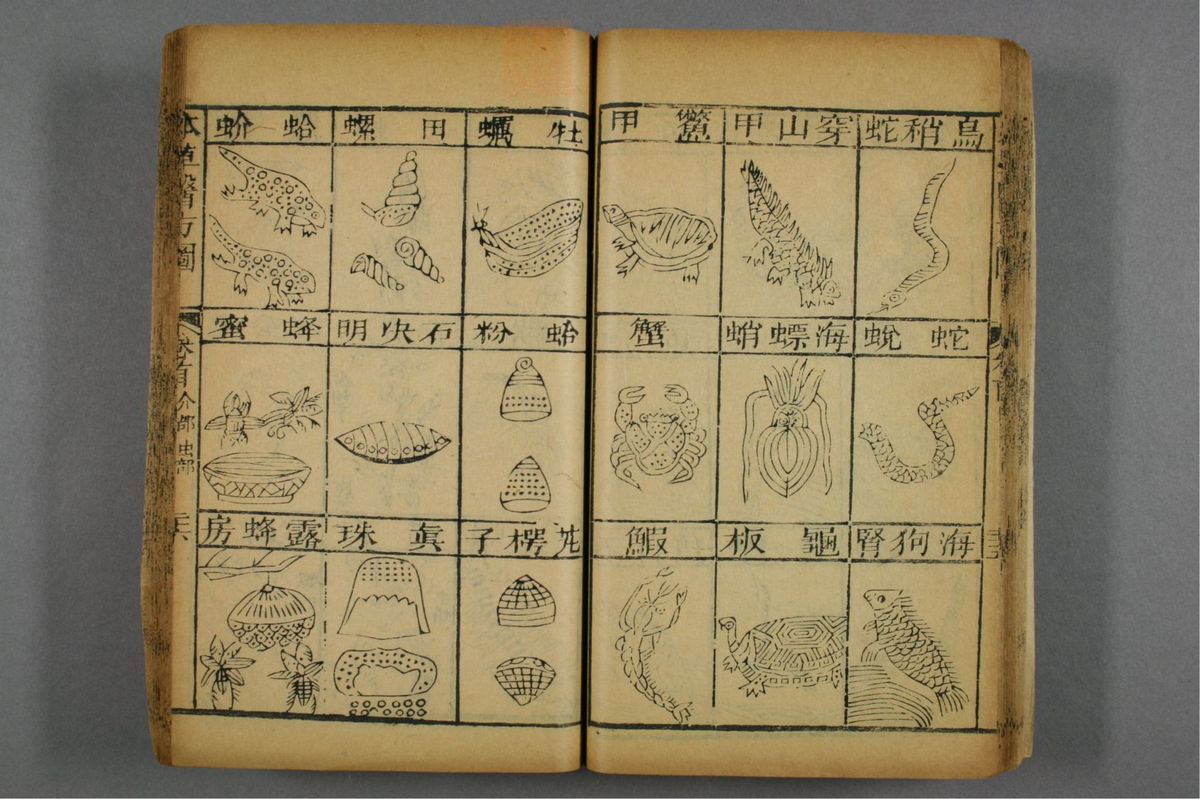 鳥稍蛇
穿山甲
鱉甲
蛇蛻
海螵蛸
蟹
海狗腎
龜板
鰕
牡蠣
田螺
蛤蚧
蛤粉
石决明
蜂蜜
瓦楞子
眞珠
露蜂房
本草醫方圖
卷首介部 虫部